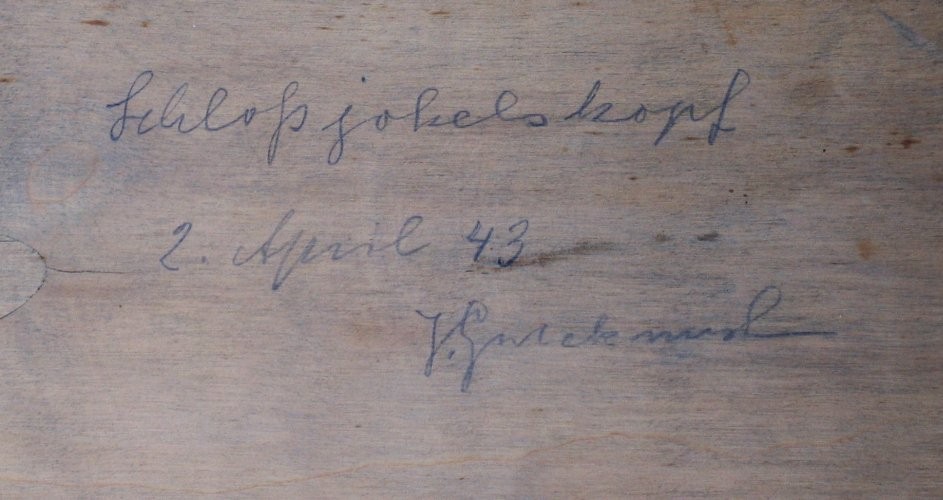 Schloßjokelskopf
2. April 43